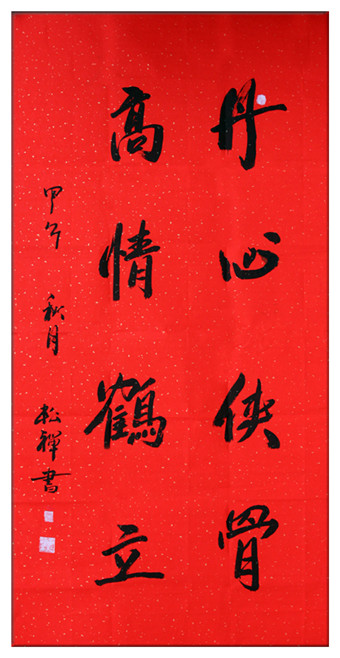 丹心侠骨
高情鶴立
甲午 秋月 松禅書